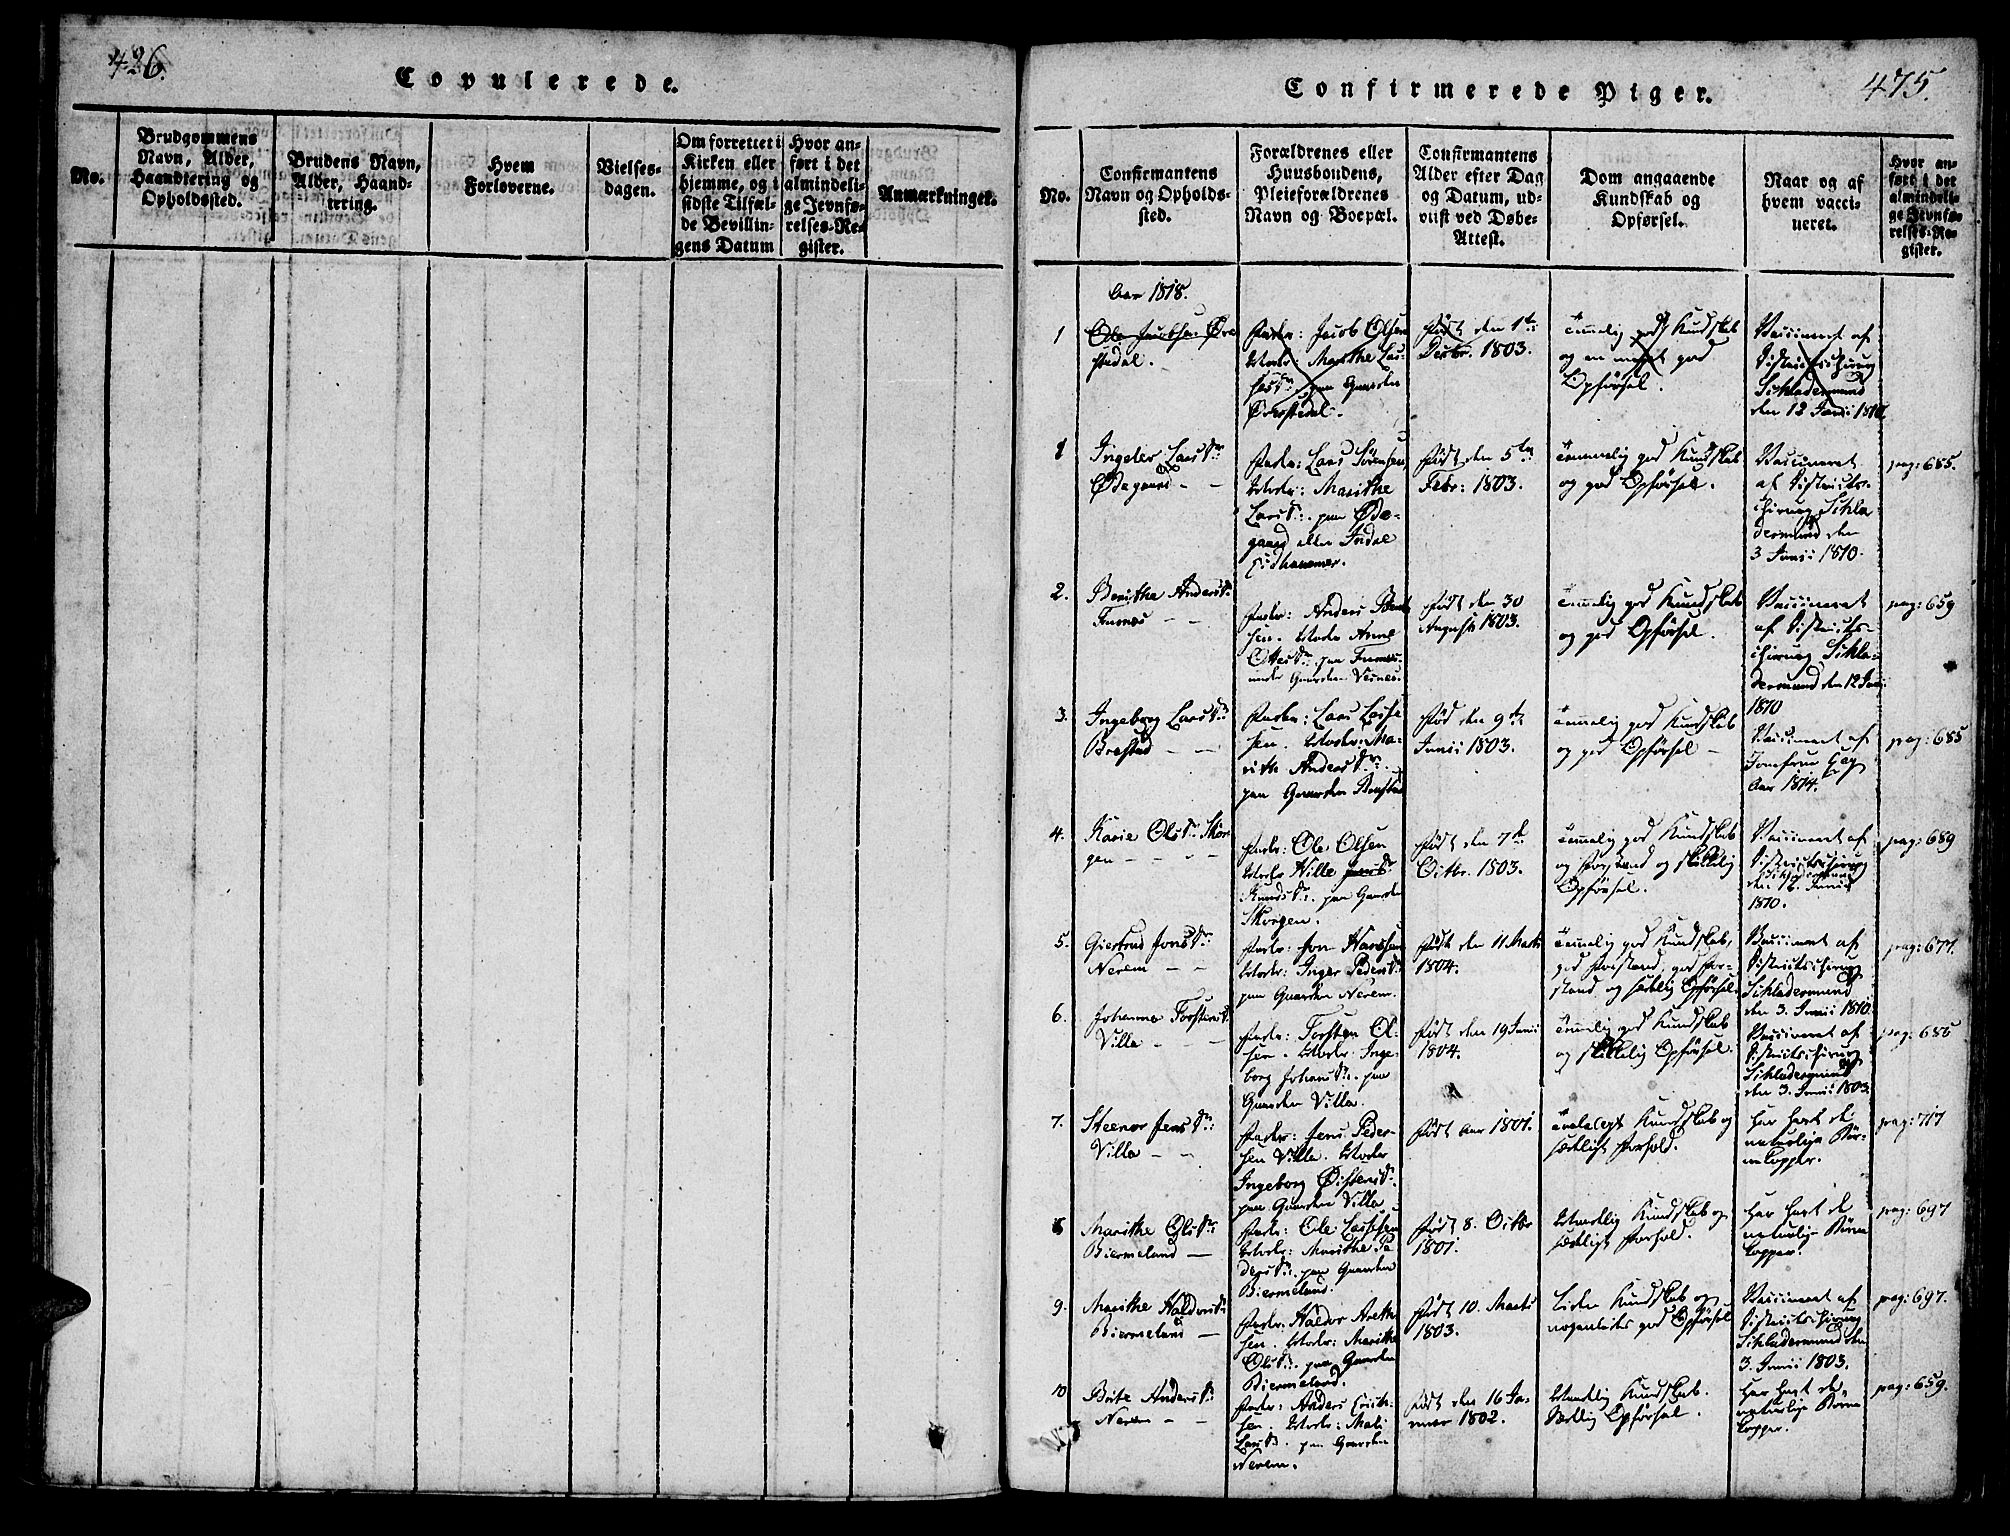 426.
Copulerede.
No.
Brudgommens
Navn, Alder,
Haandtering og
Opholdssted.
Brudens Navn,
Alder, Haand-
tering.
Hvem
Forloverne.
Vielses-
dagen.
Om forrettet i
Kirken eller
hjemme, og i
sidste Tilfæl-
de Bevillin-
gens Datum
Hvor an-
ført i det
almindeli-
ge Jevnfø-
relses-Re-
gister.
Anmærkninger.
Confirmerede Piger.
475.
No.
Confirmantens
Navn og Opholds-
sted.
Forældrenes eller
Huusbondens,
Pleieforældrenes
Navn og Boepæl.
Confirmantens
Alder efter Dag
og Datum, ud-
viist ved Døbe-
Attest.
Dom angaaende
Kundskab og
Opførsel.
Naar og af
hvem vacci-
neret.
Hvor an-
ført i det
almindeli-
ge Jevnfø-
relses-Re-
gister.
Aar 1818.
1
Ole Jacobsen Øre
stedal.
Fader: Jacob Olsen
Moder: Marithe Las-
sesdr. paa Gaarden
Ørestedal.
Født den 1te
Decbr. 1803.
temmelig god Kundskab
og en meget god
Opførsel.
Vaccineret af
Districtschirurg
Schladermund
den 12 Junii 1810.
1
Ingeler Larsdr
Ødegaard
Fader: Lars Sørensen
Moder: Marithe
Larsdr. paa Øde-
gaard eller Indal
Eidhammer.
Født den 5te
Febr: 1803.
temmelig god Kundskab
og god Opførsel.
Vaccineret
af Districts-
chirurg Schla-
dermund den
3 Junii 1810.
pag: 685.
2.
Berithe Andersdr
Furnes
Fader: Anders Bents
sen. Moder Anne
Ottesdr. paa Furnes
under Gaarden Vesnes.
Født den 30
August 1803.
temmelig god Kundskab
og god Opførsel.
Vaccineret
af Districts-
chirurg Schla-
dermund den 12 Juni
1810
pag: 659
3.
Ingeborg Larsdr
Brestad
Fader: Lars Lasse
sen. Moder: Ma-
rith Andersdr.
paa Gaarden Brestad
Fød den 9de
Junii 1803.
temmelig god Kundskab
og god Opførsel
Vaccineret af
Jomfrue Eeg
Aar 1814.
pag: 685
4.
Karie Olsdr Skor
gen
Fader: Ole Olsen
Moder Hille
Knudsdr. paa Gaarden
Skorgen.
Født den 7de
Octbr. 1803.
temmelig god Kundskab
og Forstand og skikkelig
Opførsel.
Vaccineret af
Districtschirurg
Schladermund
den 12. Junii
1810.
pag: 689
5.
Giertrud Jonsdr:
Nerem
Fader: Jon Hansen
Moder: Inger Pedersdr.
paa Gaarden Nerem.
Født den 11 Marti
1804.
temmelig god Kundskab,
god Forstand, god For-
stand og sædelig Opførsel.
Vaccineret af
Districtschirurg
Schladermund
den 3. Junii 1810.
pag: 677.
6.
Johanne Torstensdr.
Villa
Fader: Torsten Ol-
sen. Moder: Inge-
borg Johansdr. paa
Gaarden Villa.
Født den 19 Junii
1804.
temmelig god Kundskab
og skikkelig Opførsel.
Vaccineret af
Districtschirurg
Schladermund
den 3. Junii 1803
pag: 686
7.
Steenor Jensdr:
Villa
Fader: Jens Peder-
sen Villa. Moder
Ingeborg Østensdr.
paa Gaarden Villa
Født Aar 1801.
taaleligt Kundskab og
sædeligt Forhold.
Har havt de
naturlige Bør-
nekopper.
pag: 717
8
Marithe Olsdr
Biermeland
Fader: Ole Lassesen
Moder: Marithe Pe
dersdr. paa Gaarden
Biermeland.
Født 8. Octbr
1801.
Maadelig Kundskab og
sædeligt Forhold.
Har havt de
naturlige Børne
kopper.
pag: 697
9.
Marithe Haldorsdr
Biermeland
Fader: Haldor Areth
sen. Moder: Marithe
Olsdr. paa Gaarden
Biermeland.
Født 10. Marti
1803.
Liden Kundskab og
nogenledes god Opførsel
Vaccineret af
Districtschirurg
Schladermund den
3. Junii 1803.
pag: 697.
10
Brite Andersdr
Nerem
Fader: Anders Erich-
sen. Moder: Mali
Larsdr. paa Gaarden
Nerem.
Født den 16 Ja-
nuar 1802.
Maadelig Kundskab.
Sædelig Opførsel.
Har havt de
naturlige Børne
kopper.
pag: 659.